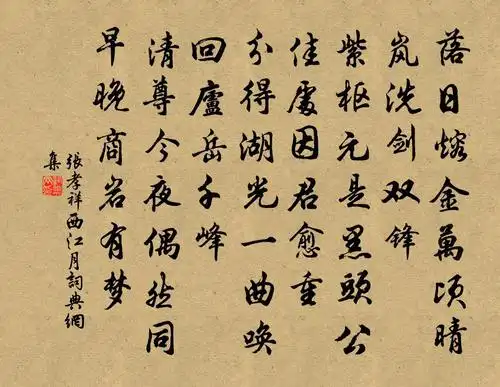 落日熔金萬頃晴
岚洗剑双锋
紫枢元是黑頭公
佳處因君愈重
分得湖光一曲唤
回廬岳千峰
清尊今夜偶然同
早晚商岩有梦
張孝祥西江月詞典網
集